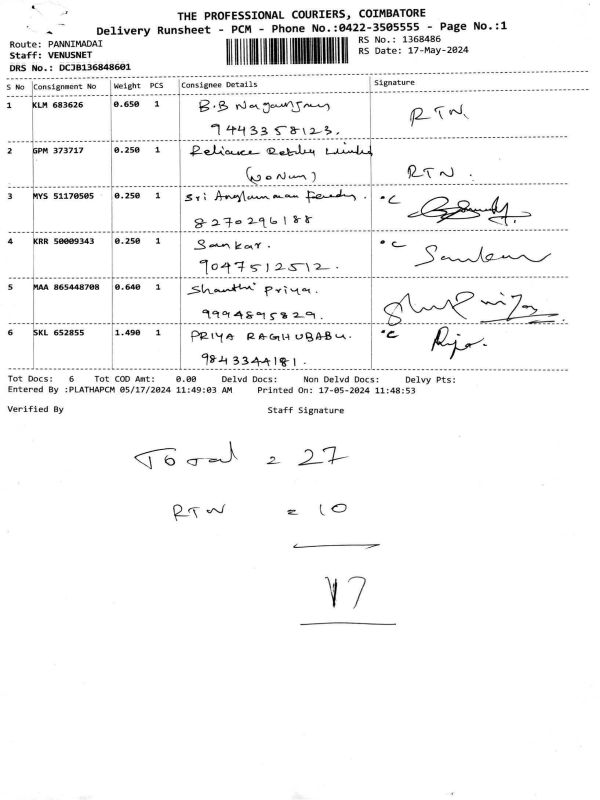 THE PROFESSIONAL COURIERS, COIMBATORE
Delivery Runsheet - PCM - Phone No.:0422-3505555 - Page No.:1
Route: PANNIMADAI
RS No.: 1368486
Staff: VENUSNET
RS Date: 17-May-2024
DRS No.: DCJB136848601
S No Consignment No Weight PCS Consignee Details Signature
1 KLM 683626 0.650 1 B.B RTN.
9443358123.
2 GPM 373717 0.250 1 Reliance Limited
(No Num) RTN.
3 MYS 51170505 0.250 1 Sri °C
8270296188
4 KRR 50009343 0.250 1 Sankar. °C
9047512512.
5 MAA 865448708 0.640 1 Shanthi Priya.
9994895829.
6 SKL 652855 1.490 1 PRIYA RAGHUBABU. °C
9843344181.
Tot Docs: 6 Tot COD Amt: 0.00 Delvd Docs: Non Delvd Docs: Delvy Pts:
Entered By :PLATHAPCM 05/17/2024 11:49:03 AM Printed On: 17-05-2024 11:48:53
Verified By Staff Signature
Total = 27
RTN = 10
17